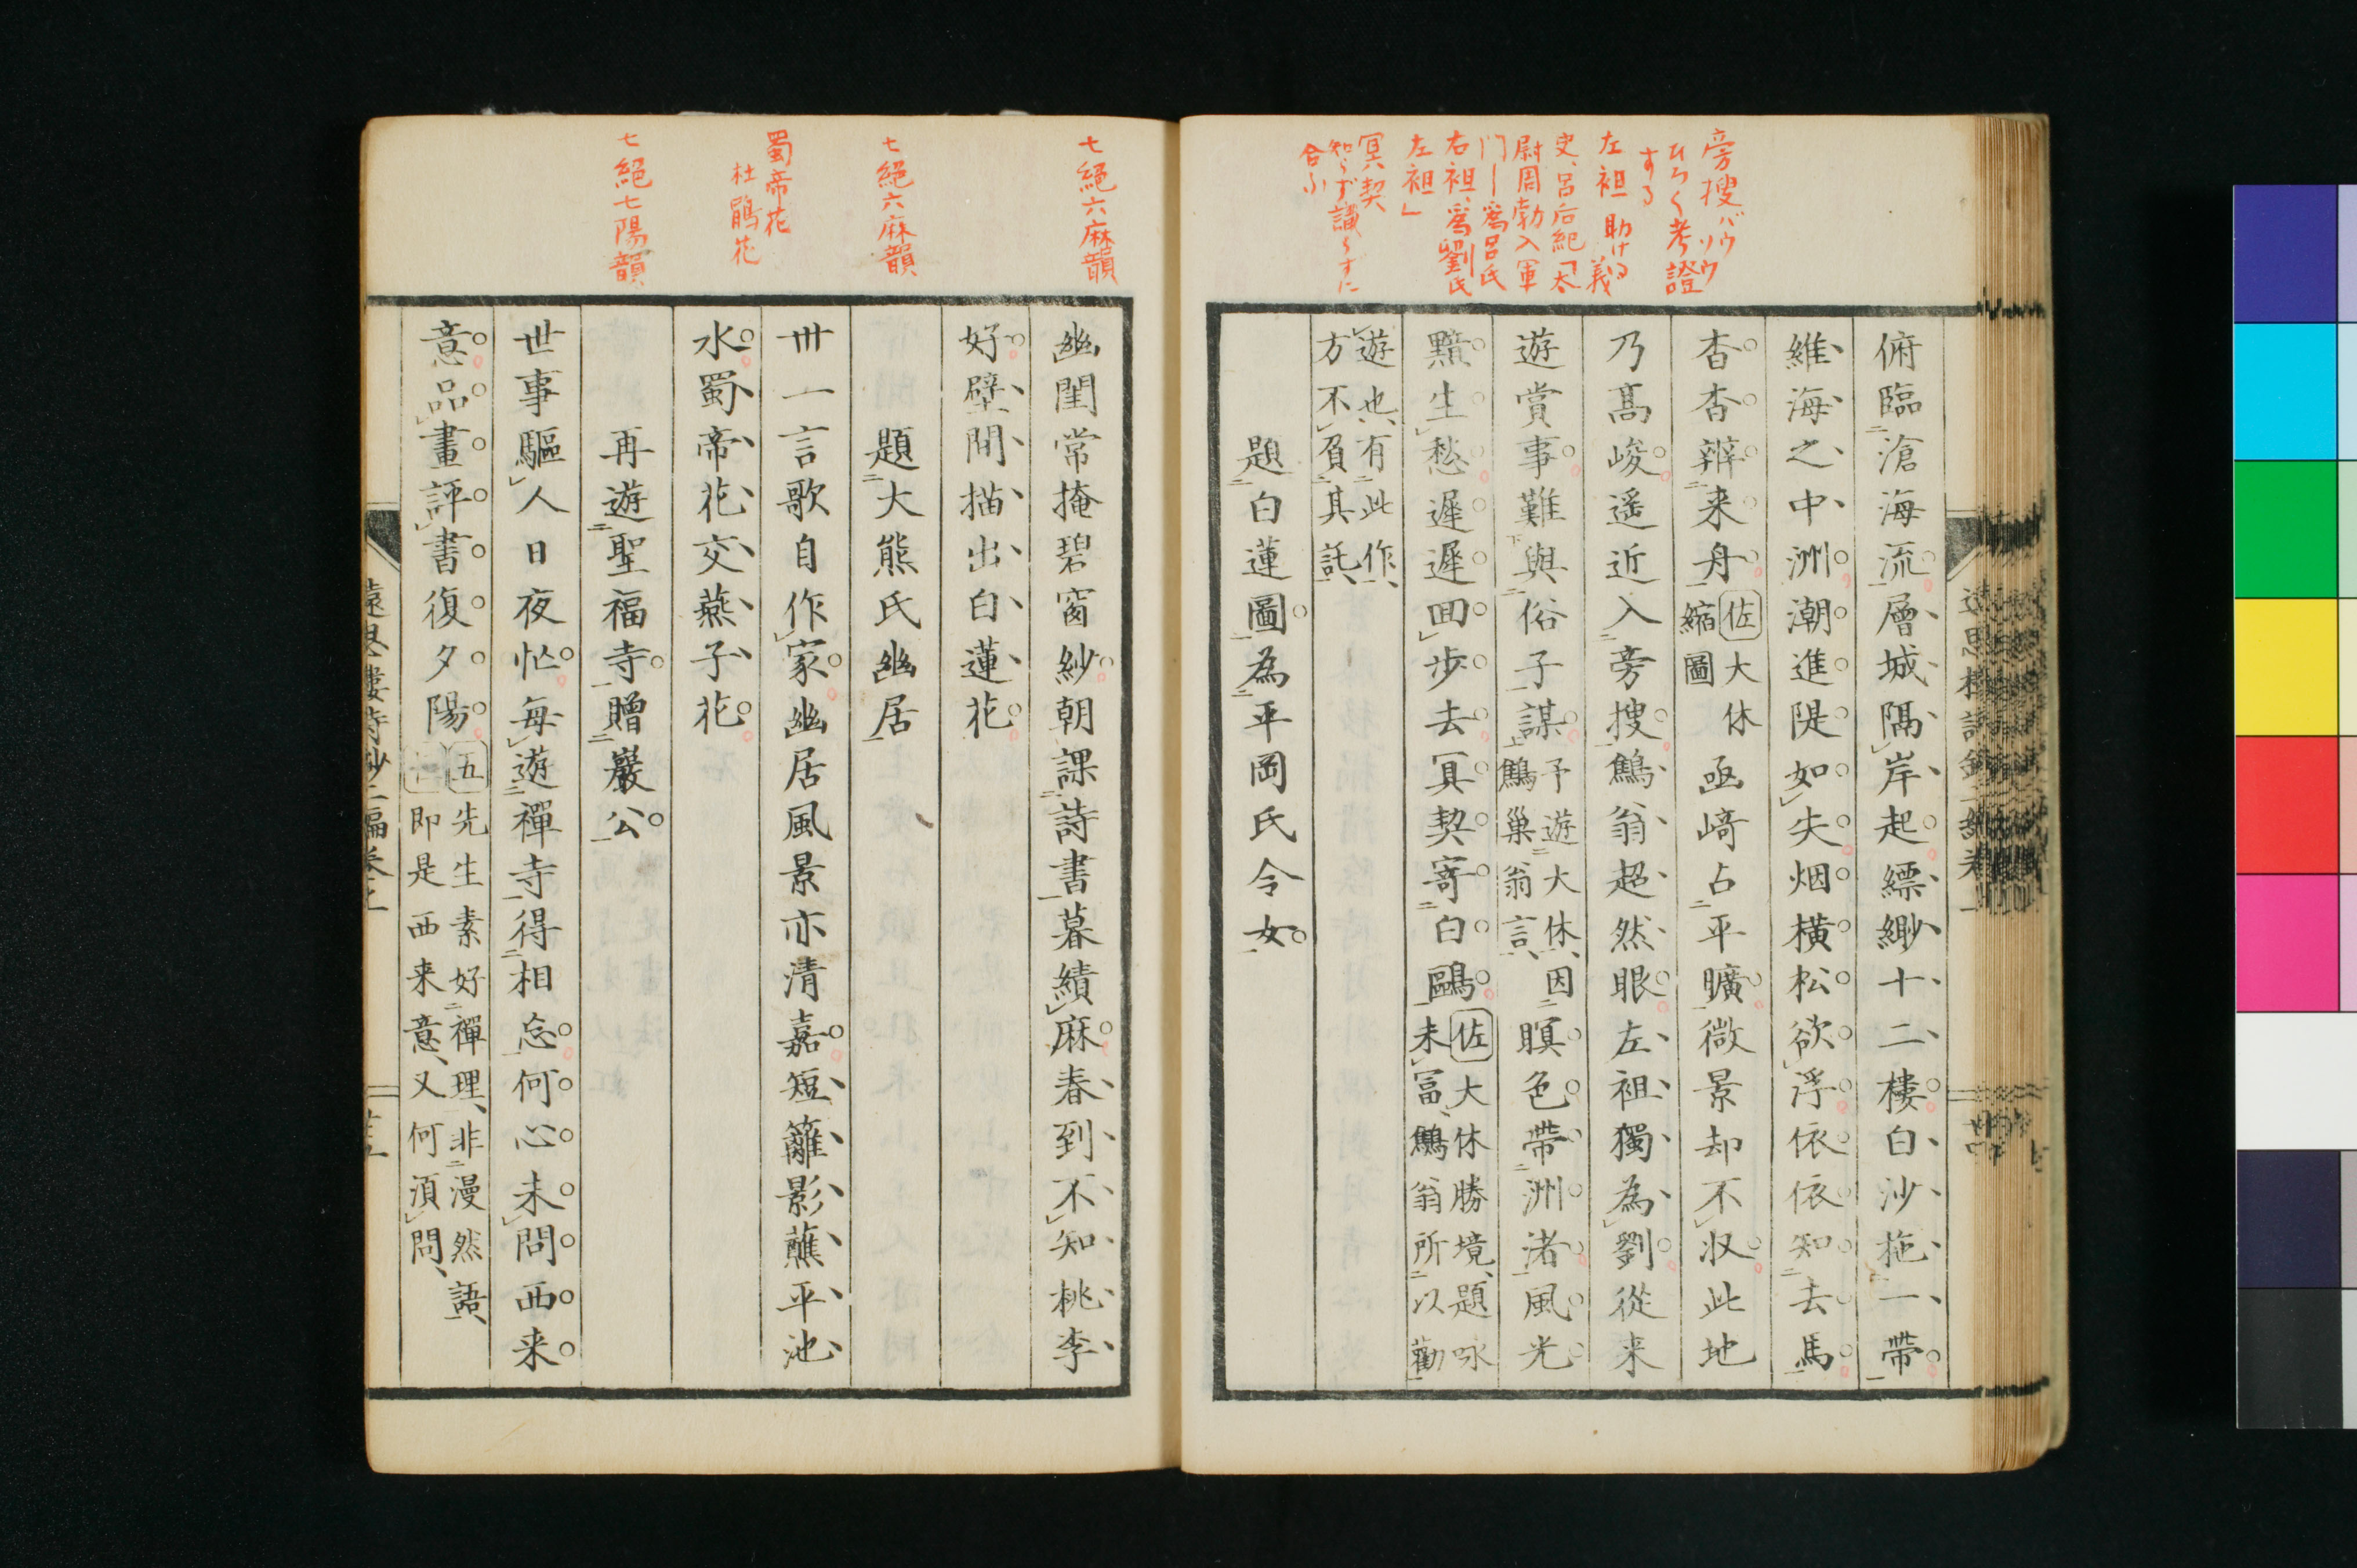 旁搜 バウソウ
ひろく考證
する
左袒 助ける義
史、呂后紀「太
尉周勃入軍
門ー為呂氏
右袒、為劉氏
左袒」
冥契
知らず識らずに
合ふ
俯臨滄海流層城隅岸起縹緲十二樓白沙拖一帶
維海之中洲潮進隄如失烟橫松欲浮依依知去馬
杳杳辨来舟 佐大休縮圖 亟﨑占平曠微景却不収此地
乃髙峻遥近入旁搜鷦翁超然眼左袒獨為劉從来
遊賞事難與俗子謀 予遊大休、因鷦巢翁言、 暝色帶洲渚風光
黯生愁遲遲回步去冥契寄白鷗 佐大休勝境、題咏未冨、鷦翁所以勸
遊也、有此作、方不負其託、
題白蓮圖為平岡氏令女
七絕六麻韻
七絕六麻韻
蜀帝花
杜鵑花
七絕七陽韻
幽閨常掩碧窗紗朝課詩書暮績麻春到不知桃李
好壁間描出白蓮花
題大熊氏幽居
卅一言歌自作家幽居風景亦清嘉短籬影蘸平池
水蜀帝花交燕子花
再遊聖福寺贈巖公
世事驅人日夜忙每遊禪寺得相忘何心未問西来
意品畫評書復夕陽 五先生素好禪理、非漫然語、即是西来意、又何湏問、
遠思樓詩鈔二編卷一